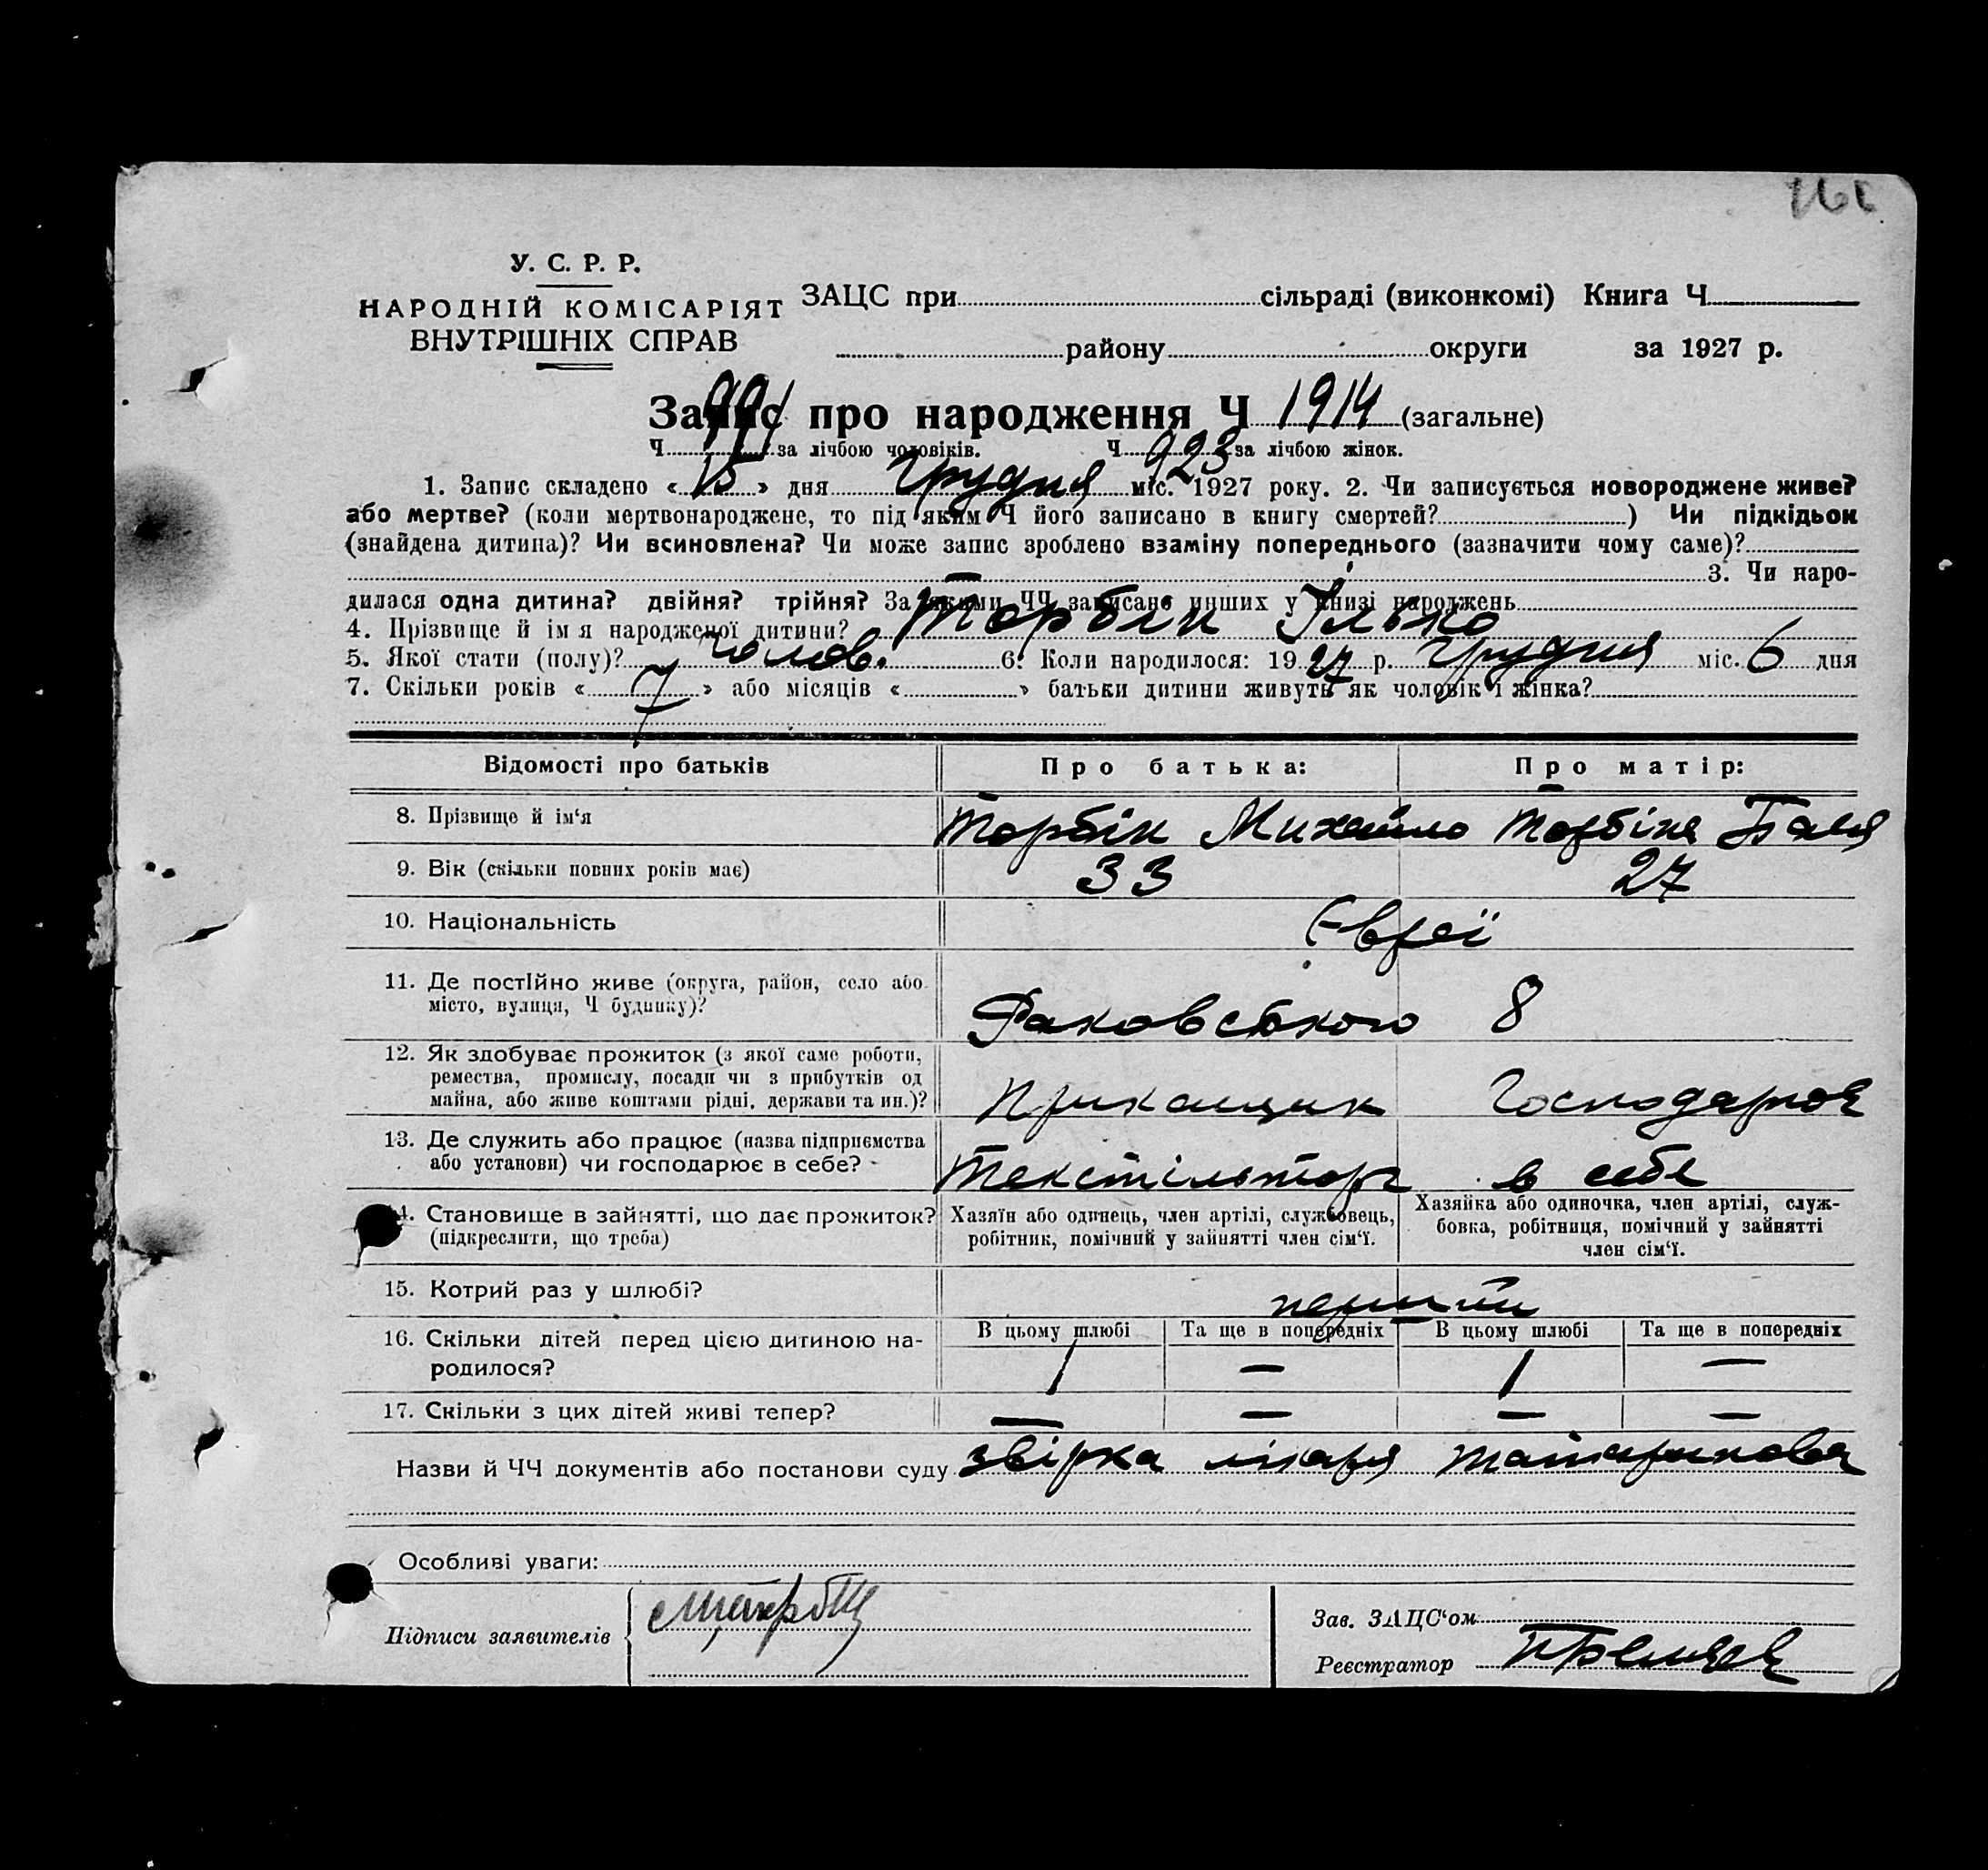 У. С. Р. Р.
НАРОДНІЙ КОМІСАРІЯТ
ВНУТРІШНІХ СПРАВ
ЗАЦС при сільраді (виконкомі) Книга Ч.
району округи за 1927 р.
Запис про народження Ч 1914 (загальне)
Ч 991 за лічбою чоловіків. Ч 923 за лічбою жінок.
1. Запис складено « 15 » дня грудня міс. 1927 року. 2. Чи записується новороджене живе?
або мертве? (коли мертвонароджене, то під яким Ч його записано в книгу смертей? ) Чи підкідьок
(знайдена дитина)? Чи всиновлена? Чи може запис зроблено взаміну попереднього (зазначити чому саме)?
3. Чи наро-
дилася одна дитина? двійня? трійня? За якими ЧЧ записано инших у книзі народжень
4. Прізвище й ім я народженої дитини? Торбін Ілько
5. Якої стати (полу)? чолов. 6. Коли народилося: 19 27 р. грудня міс. 6 дня
7. Скільки років « 7 » або місяців « » батьки дитини живуть як чоловік і жінка?
Відомості про батьків Про батька: Про матір:
8. Прізвище й ім‘я Торбін Михайло Торбіна Бася
9. Вік (скільки повних років має) 33 27
10. Національність Євреї
11. Де постійно живе (округа, район, село або
місто, вулиця, Ч будинку)? Раковського 8
12. Як здобуває прожиток (з якої саме роботи,
ремества, промислу, посади чи з прибутків од
майна, або живе коштами рідні, держави та ин.)? Прикащик Господарює
13. Де служить або працює (назва підприємства
або установи) чи господарює в себе? Текстільторг в себе
14. Становище в зайнятті, що дає прожиток?
(підкреслити, що треба)
Хазяїн або одинець, член артілі, службовець,
робітник, помічний у зайнятті член сім‘ї.
Хазяйка або одиночка, член артілі, служ-
бовка, робітниця, помічний у зайнятті
член сім‘ї.
15. Котрий раз у шлюбі? перший
16. Скільки дітей перед цією дитиною на-
родилося?
В цьому шлюбі Та ще в попередніх В цьому шлюбі Та ще в попередніх
1 — 1 —
17. Скільки з цих дітей живі тепер? — — — —
Назви й ЧЧ документів або постанови суду звірка лікаря
Особливі уваги:
Підписи заявителів
Зав. ЗАЦС‘ом
Реєстратор